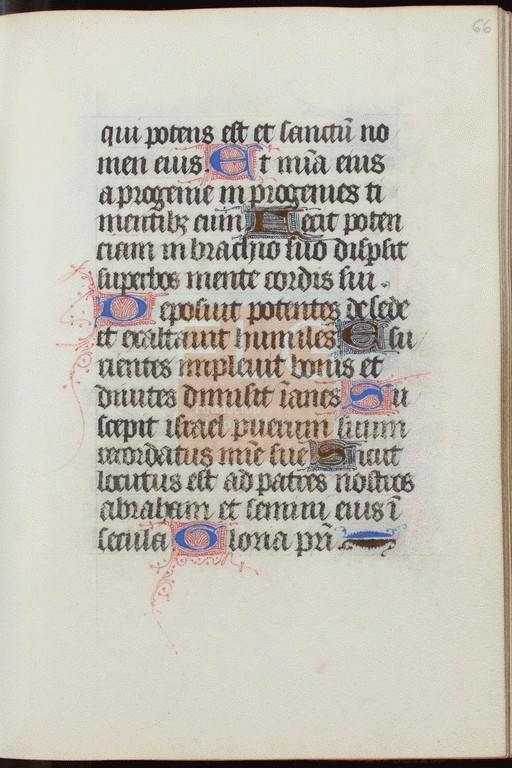 66
qui potens est et sanctū no
men eius. Et mīa eius
a progenie in progenies ti
mentibꝫ eum Fecit poten
ciam in brachio suo dispsit
superbos mente cordis sui.
Deposuit potentes de sede
et exaltauit humiles Esu
rientes impleuit bonis et
diuites dimisit īanes Su
scepit israel puerum suum
recordatus mīe sue Sicut
locutus est ad patres nostros
abraham et semini eius ī
secula Gloria pri.